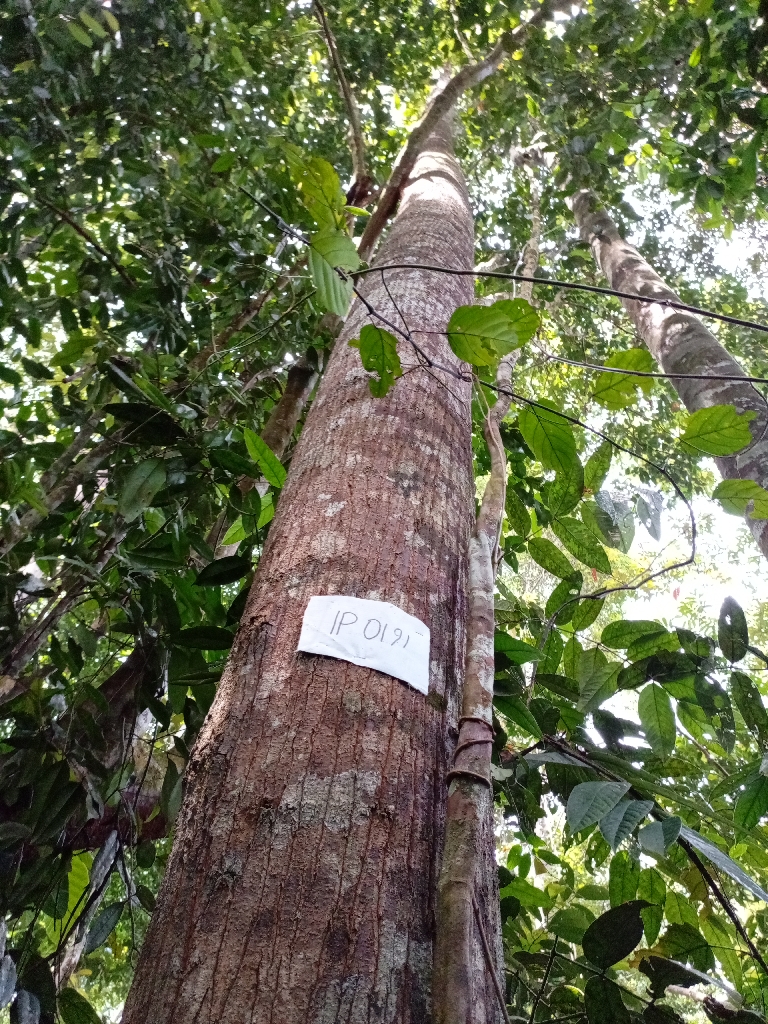 IP 0191